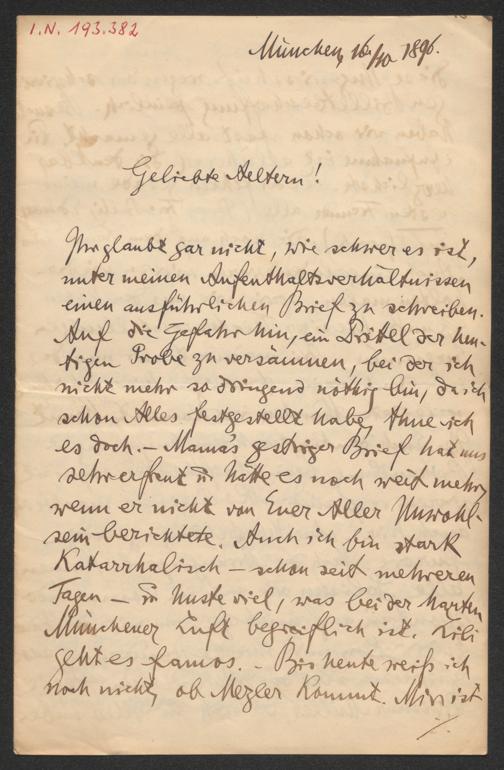 I.N. 193.382
München, 16/10 1896.
Geliebte Aeltern!
Ihr glaubt gar nicht, wie schwer es ist,
unter meinen Aufenthaltsverhältnissen
einen ausführlichen Brief zu schreiben.
Auf die Gefahr hin, ein Drittel der heu-
tigen Probe zu versäumen, bei der ich
nicht mehr so dringend nöthig bin, da ich
schon Alles festgestellt habe, thue ich
es doch. – Mama's gestriger Brief hat uns
sehr erfreut u hätte es noch weit mehr,
wenn er nicht von Euer Aller Unwohl-
sein berichtete. Auch ich bin stark
Katarrhalisch – schon seit mehreren
Tagen – u huste viel, was bei der harten
Münchener Luft begreiflich ist. Lili
geht es famos. – Bis heute weiß ich
noch nicht, ob Mezler kommt. Mir ist
./.